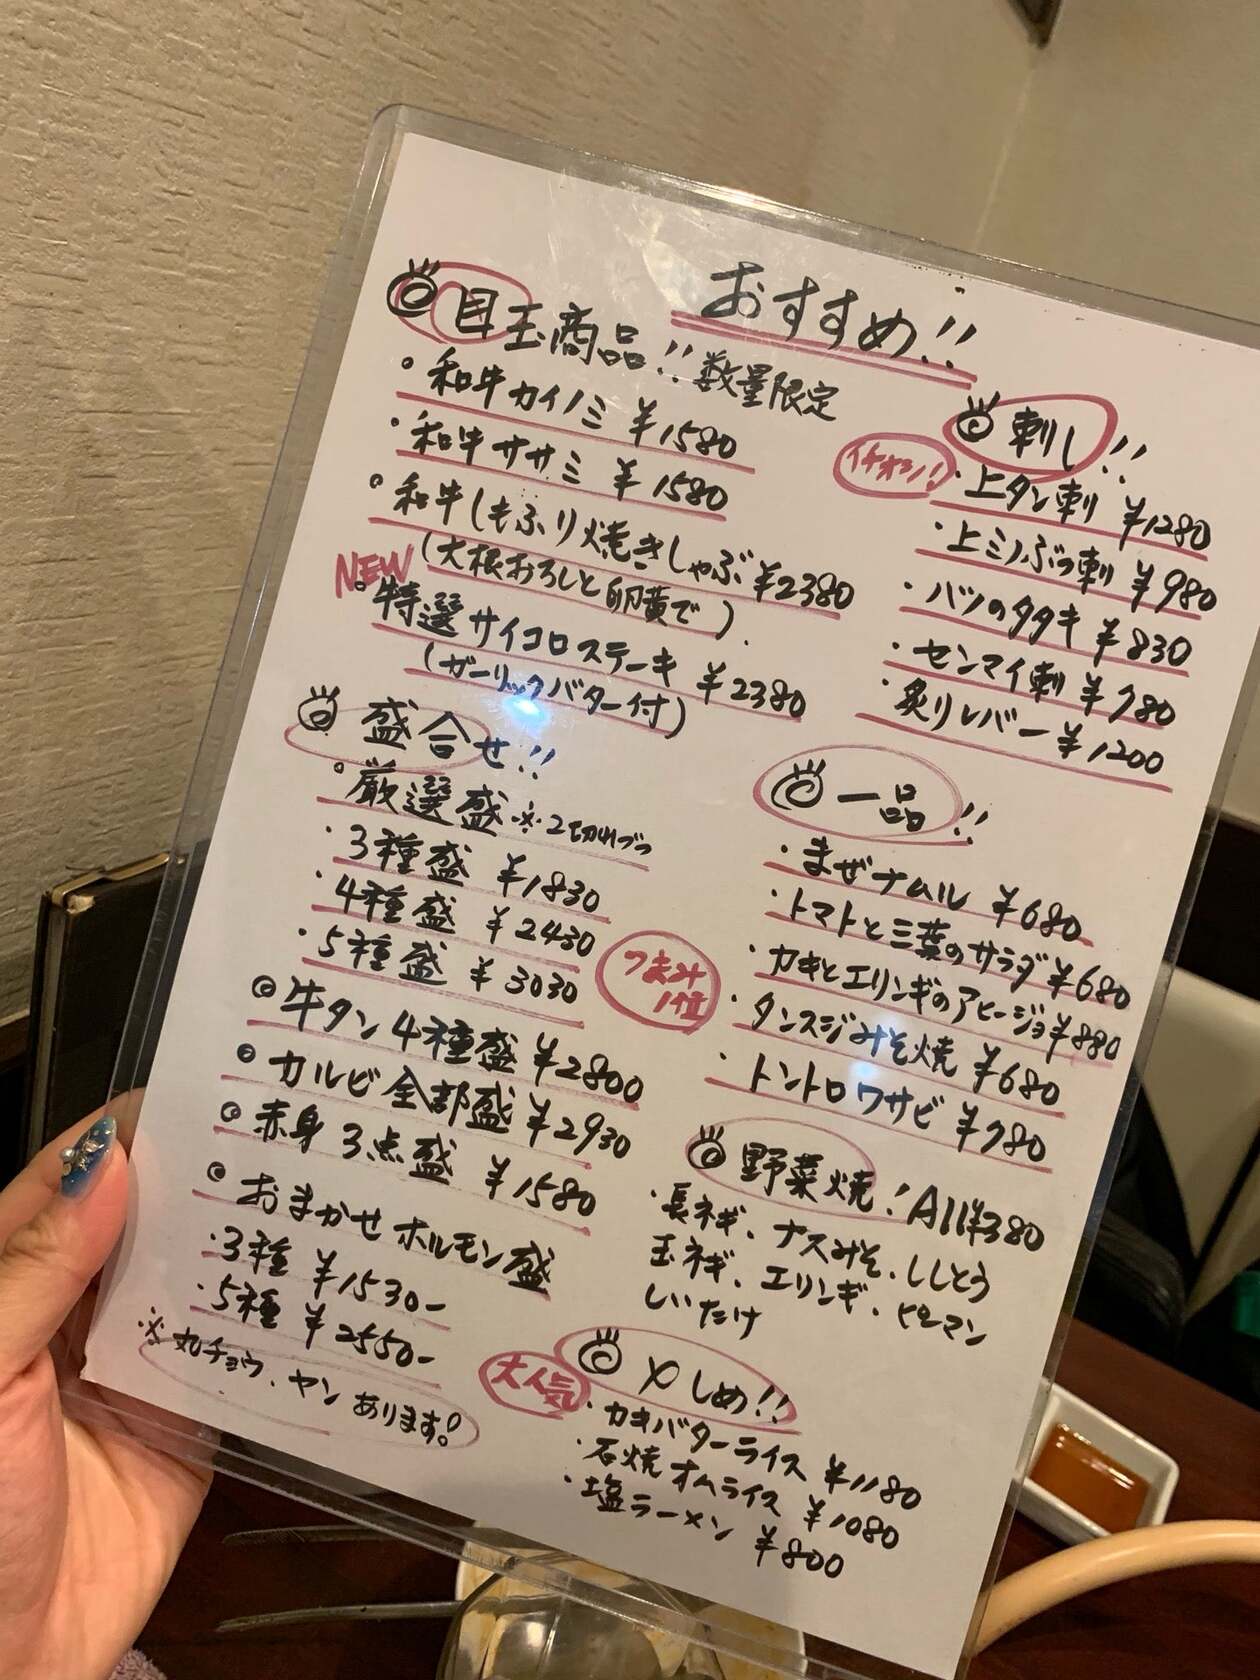 おすすめ!!
目玉商品!! 数量限定
・和牛カイノミ ¥1580
・和牛ササミ ¥1580
・和牛しもふり焼きしゃぶ ¥2380
(大根おろしと卵黄で)
NEW
・特選サイコロステーキ ¥2380
(ガーリックバター付)
盛合せ!!
・厳選盛 ※2切れづつ
・3種盛 ¥1830
・4種盛 ¥2430
・5種盛 ¥3030
◎牛タン4種盛 ¥2800
◎カルビ全部盛 ¥2930
◎赤身3点盛 ¥1580
◎おまかせホルモン盛
・3種 ¥1530-
・5種 ¥2550-
※丸チョウ、ヤンあります!
刺し!!
イチオシ!
・上タン刺 ¥1280
・上ミノぶつ刺 ¥980
・ハツのタタキ ¥830
・センマイ刺 ¥780
・炙りレバー ¥1200
一品!!
・まぜナムル ¥680
・トマトと三葉のサラダ ¥680
・カキとエリンギのアヒージョ ¥880
つまみ
1位
・タンスジみそ焼 ¥680
・トントロワサビ ¥780
野菜焼! All¥380
・長ネギ、ナスみそ、ししとう
玉ネギ、エリンギ、ピーマン
しいたけ
〆しめ!!
大人気
・カキバターライス ¥1180
・石焼オムライス ¥1080
・塩ラーメン ¥800